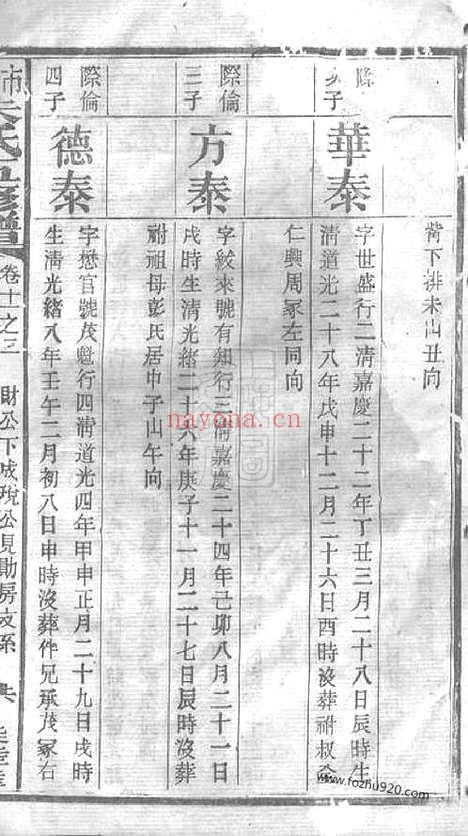 背下排未山丑向
際倫
次子
華泰
字世盛行二清嘉慶二十二年丁丑三月二十八日辰時生
清道光二十八年戊申十二月二十六日酉時沒葬祔叔
仁興周冢左同向
際倫
三子
方泰
字紋來號有知行三清嘉慶二十四年己卯八月二十一日
戌時生清光緒二十六年庚子十一月二十七日辰時沒葬
祔祖母彭氏居中子山午向
際倫
四子
德泰
字懋官號茂魁行四清道光四年甲申正月二十九日戌時
生清光緒八年壬午二月初八日申時沒葬伴兄承茂冢右
氏五修譜
卷十之三
財公下成琁公見勛房支系
nayona.cn
www.fozhu920.com